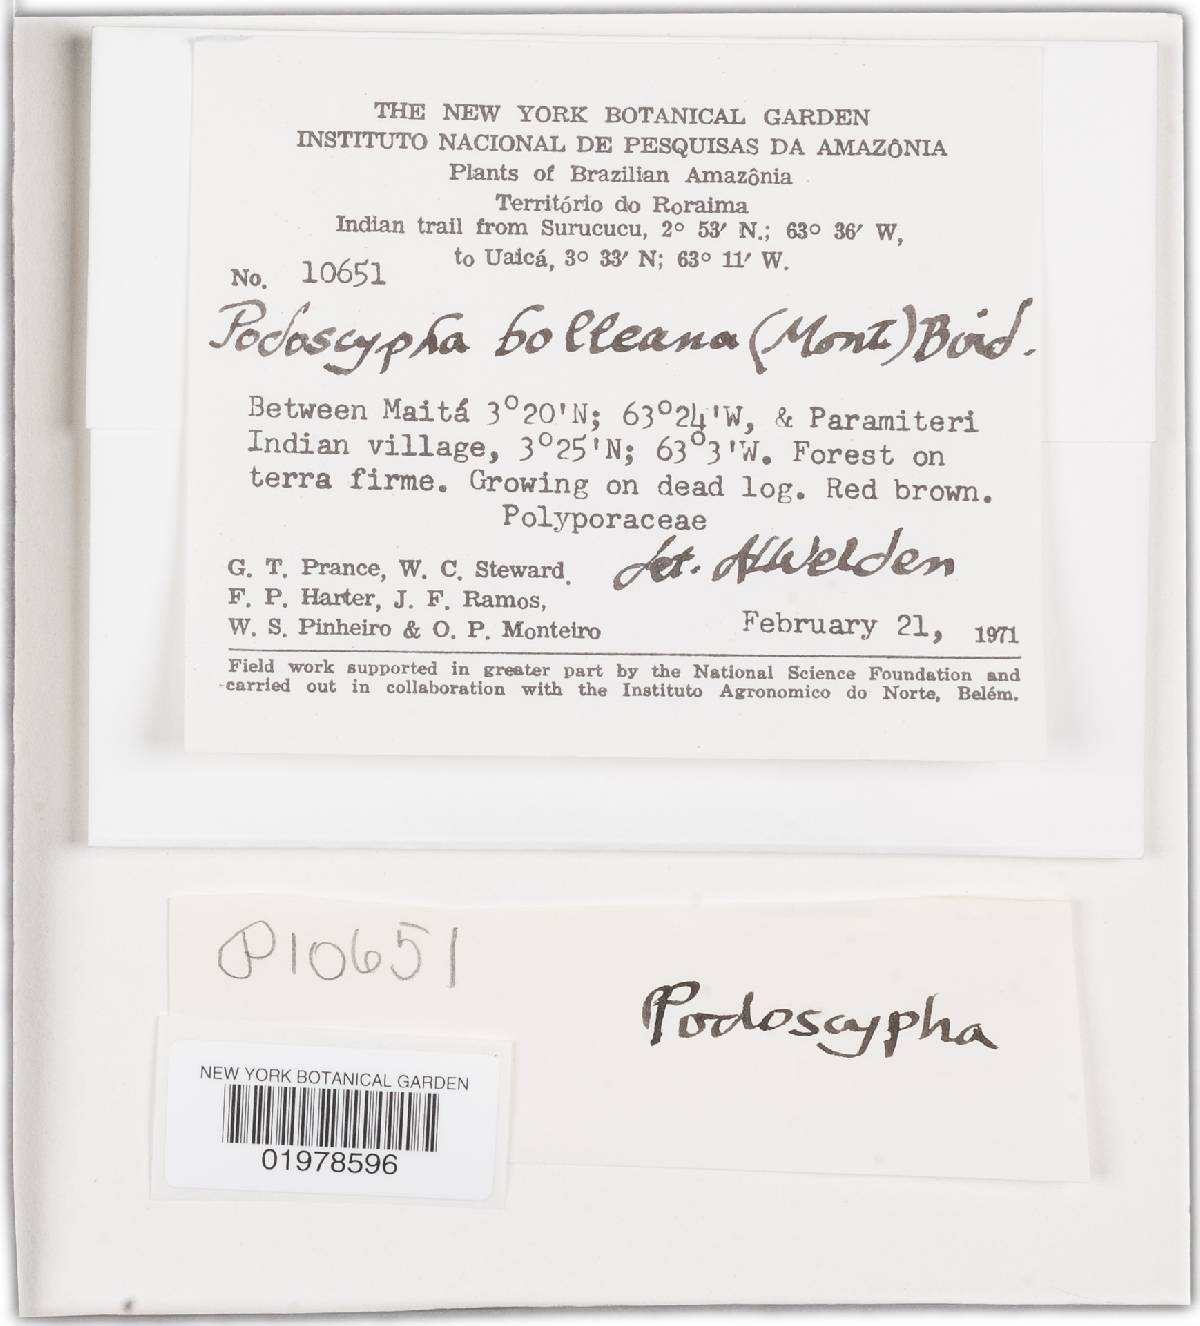 THE NEW YORK BOTANICAL GARDEN
INSTITUTO NACIONAL DE PESQUISAS DA AMAZÔNIA
Plants of Brazilian Amazônia
Território do Roraima
Indian trail from Surucucu, 2° 53′ N.; 63° 36′ W,
to Uaicá, 3° 33′ N; 63° 11′ W.
No. 10651
Podoscypha bolleana (Mont.) Boid.
Between Maitá 3°20'N; 63°24'W, & Paramiteri
Indian village, 3°25'N; 63°3'W. Forest on
terra firme. Growing on dead log. Red brown.
Polyporaceae
det. ALWelden
G. T. Prance, W. C. Steward,
F. P. Harter, J. F. Ramos,
W. S. Pinheiro & O. P. Monteiro
February 21, 1971
Field work supported in greater part by the National Science Foundation and
carried out in collaboration with the Instituto Agronomico do Norte, Belém.
P10651
Podoscypha
NEW YORK BOTANICAL GARDEN
01978596